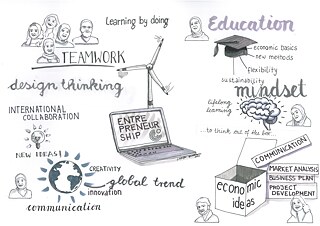 Learning by doing
Education
TEAMWORK
economic basics
new methods
flexibility
sustainability
design thinking
mindset
INTERNATIONAL
COLLABORATION
ENTRE
PRENEUR
SHIP
lifelong
learning
to think out of the box
NEW IDEAS!
COMMUNICATION
MARKET ANALYSIS
BUSINESS PLAN
PROJECT
DEVELOPMENT
CREATIVITY
innovation
global trend
communication
economic
ideas